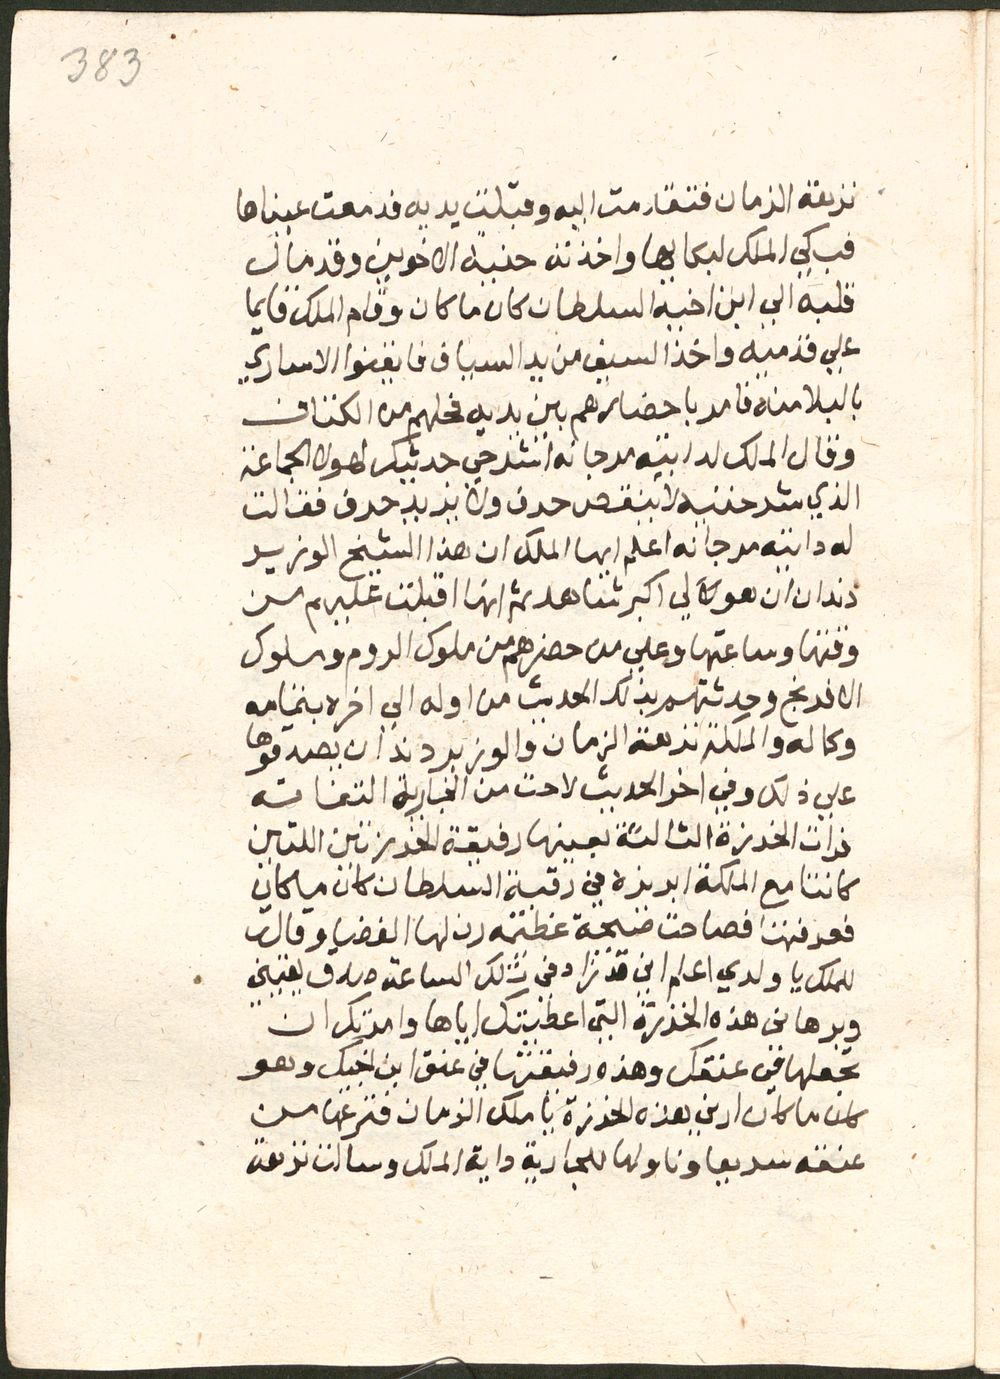 383
نزهة الزمان فتقدمت اليه وقبلت يديه فدمعت عيناها
فبكي الملك لبكايها واخذته حنية الاخوين وقد مال
قلبه الي ابن اخيه السلطان كان ما كان وقام الملك قايما
علي قدميه واخذ السيف من يد السياف فايقنوا الاساري
بالسلامة فامر باحضارهم بين يديه فحلهم من الكتاف
وقال الملك لدابته مرجانه اشرحي حديثك لهولا الجماعة
الذي شرحتيه لا ينقص حرف ولا يزيد حرف فقالت
له دابته مرجانه اعلم ايها الملك ان هذا الشيخ الوزير
دندان ان هولا لي اكبر شاهد ثم انها اقبلت عليهم من
وقتها وساعتها وعلي من حضرهم من ملوك الروم وملوك
الافرنج وحدثتهم بذلك الحديث من اوله الي اخره بتمامه
وكماله والملكة نزهة الزمان والوزير دندان يصدقوها
علي ذلك وفي اخر الحديث لاحت من الجارية التفاته
فرات الخرزة الثالثة بعينها رفيقة الخرزتين اللتين
كانتا مع الملكة ابريزه في رقبة السلطان كان ما كان
فعرفتها فصاحت صيحة عظيمة رن لها الفضا وقالت
للملك يا ولدي اعلم اني قد زاد في تلك الساعة صدق يقيني
وبرهاني هذه الخرزة التي اعطيتك اياها وامرتك ان
تجعلها في عنقك وهذه رفيقتها في عنق ابن اخيك وهو
كان ما كان ارني هذه الخرزة يا ملك الزمان فنزعها من
عنقه سريعا وناولها للجارية داية الملك وسالت نزهة